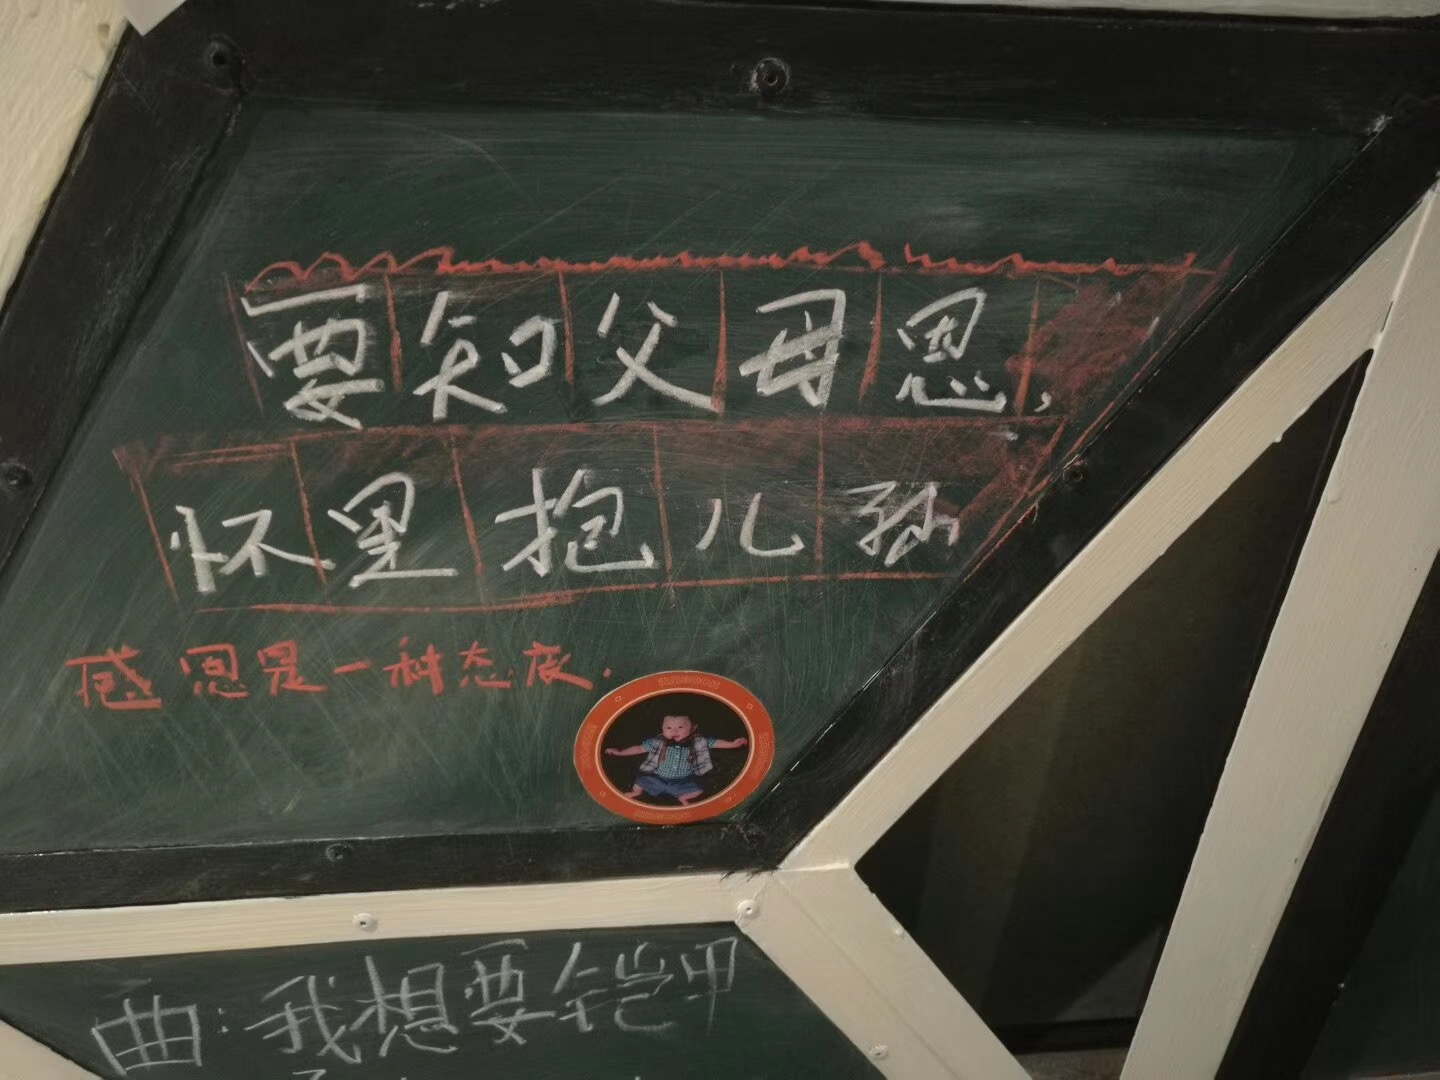 要知父母恩,
怀里抱儿孙
感恩是一种态度.
曲:我想要铠甲